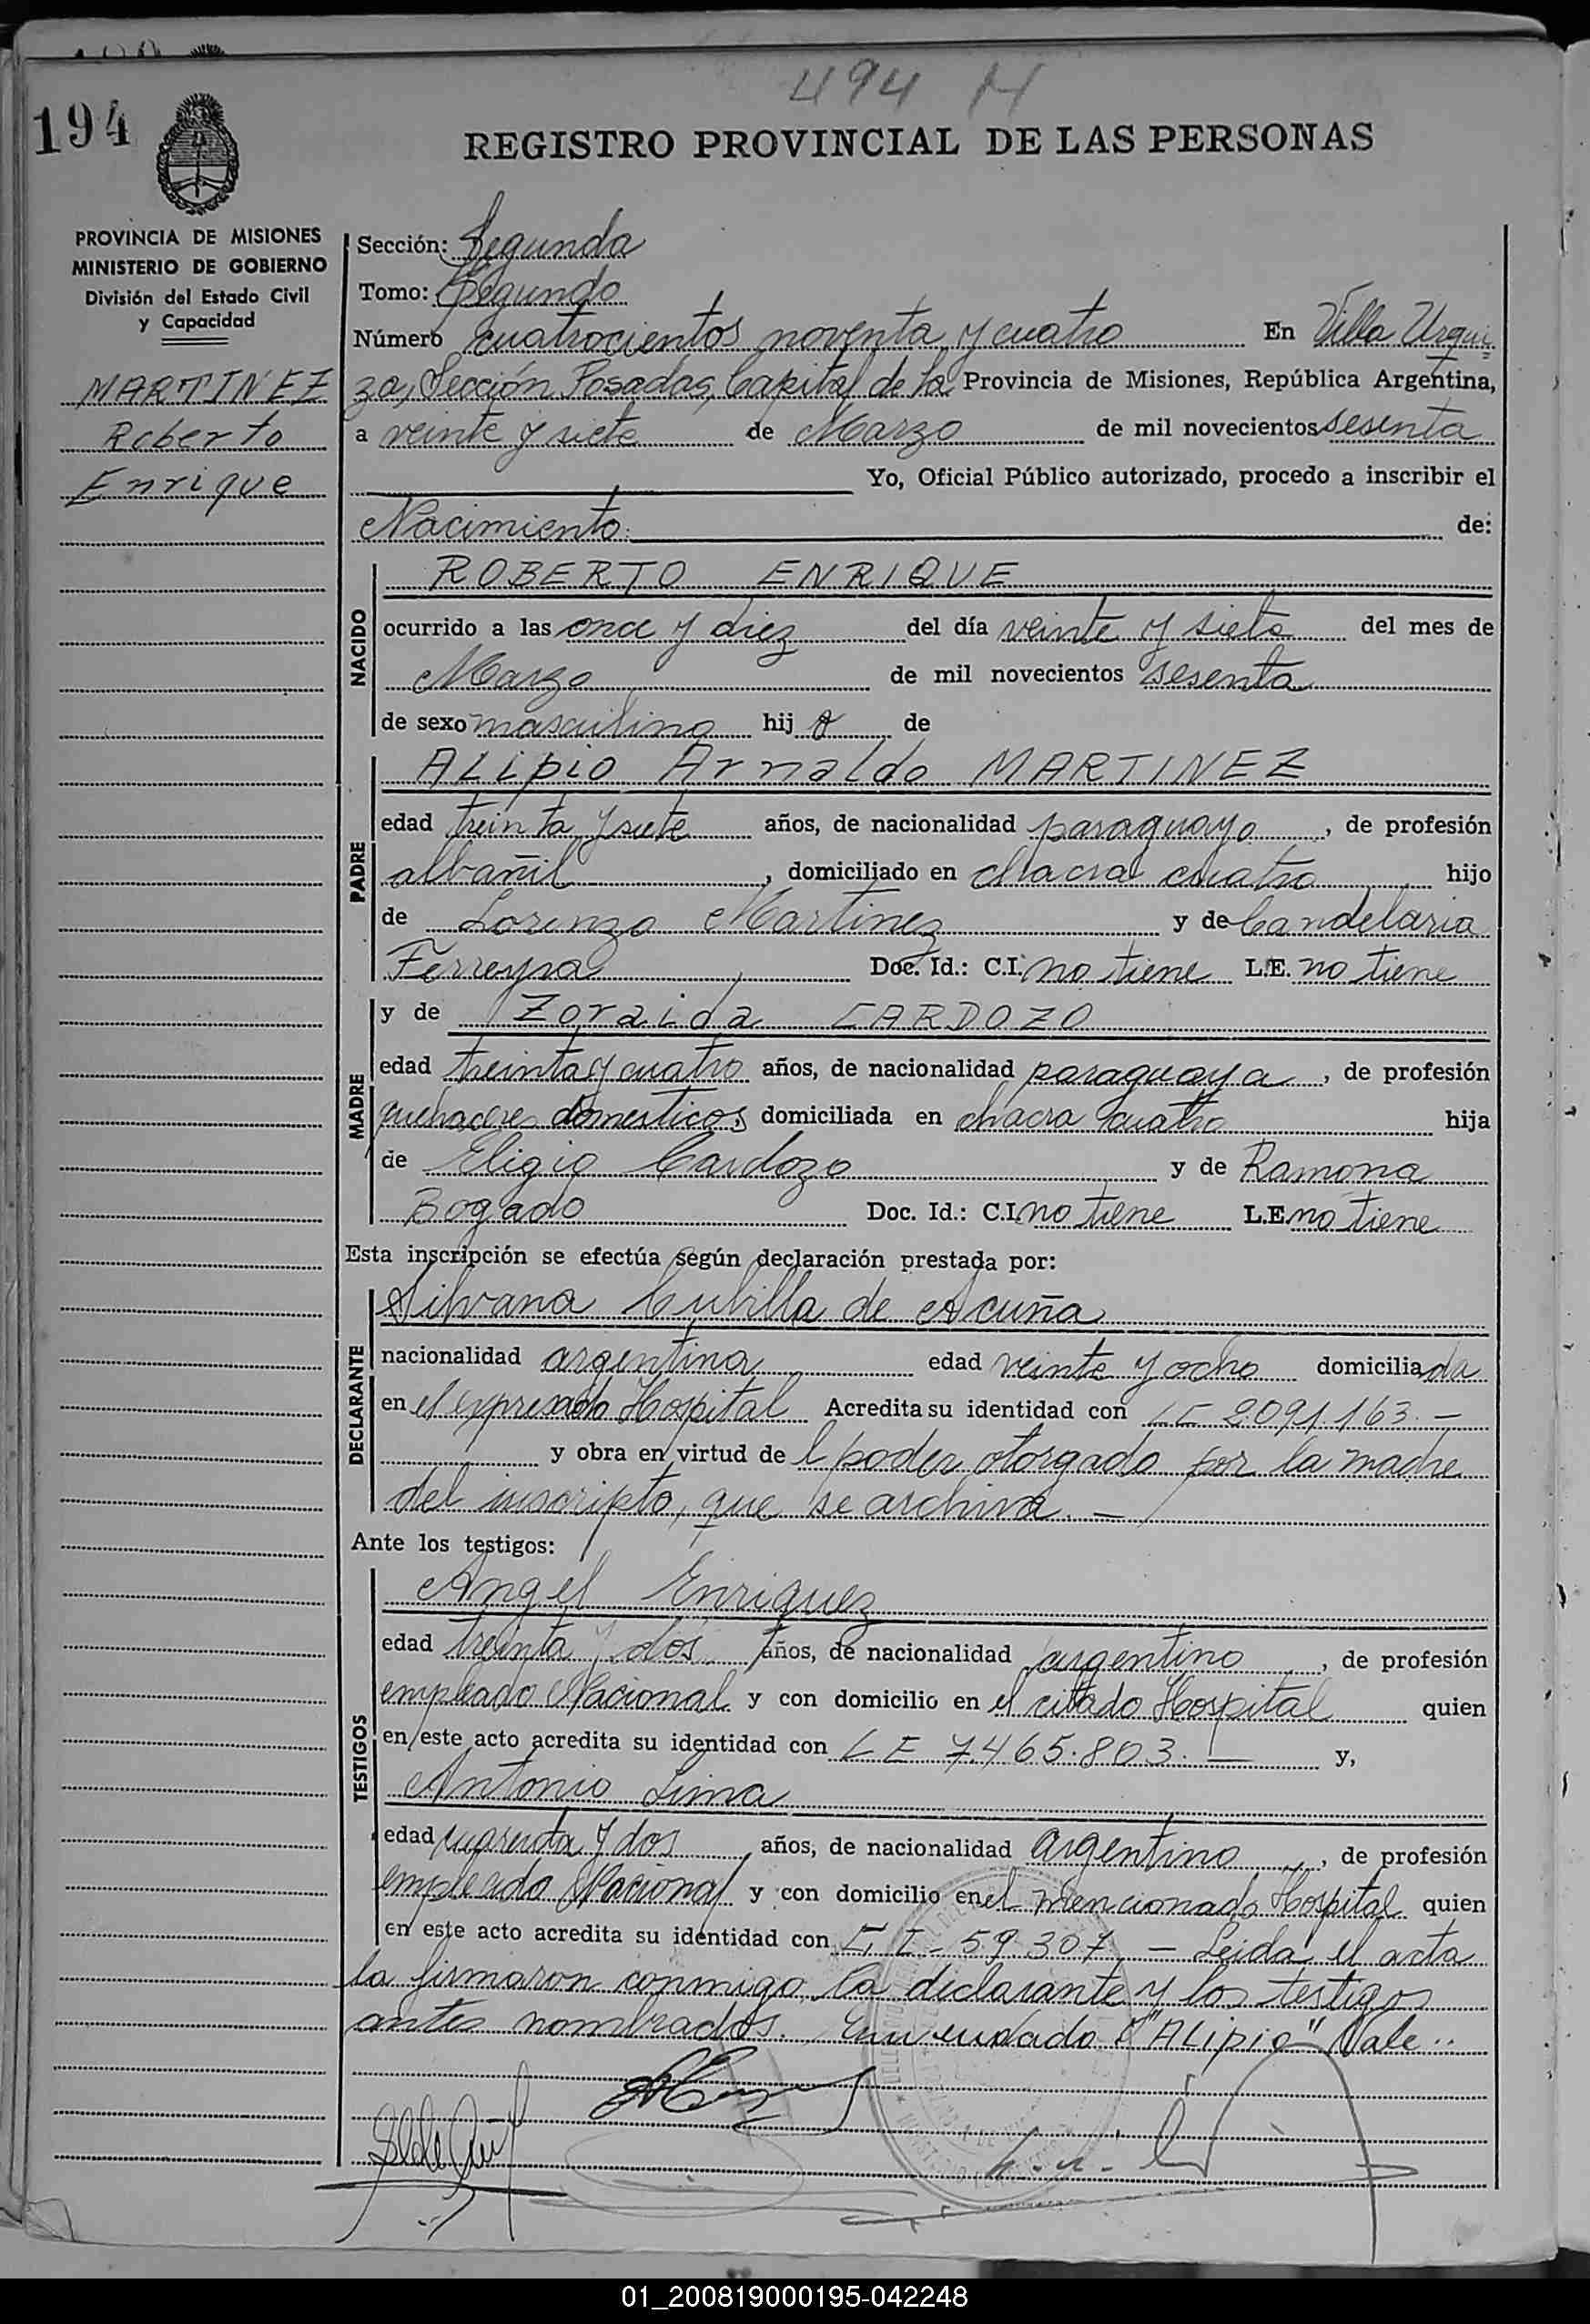 494 N
194
REGISTRO PROVINCIAL DE LAS PERSONAS
PROVINCIA DE MISIONES
MINISTERIO DE GOBIERNO
División del Estado Civil
y Capacidad
MARTINEZ
Roberto
Enrique
Sección: Segunda
Tomo: Segundo
Número cuatrocientos noventa y cuatro En Villa Urqui-
za, Sección Posadas, Capital de la Provincia de Misiones, República Argentina,
a veinte y siete de Marzo de mil novecientos sesenta
Yo, Oficial Público autorizado, procedo a inscribir el
Nacimiento de:
NACIDO
ROBERTO ENRIQUE
ocurrido a las once y diez del día veinte y siete del mes de
Marzo de mil novecientos sesenta
de sexo masculino hijo de
PADRE
ALipio Arnaldo MARTINEZ
edad treinta y siete años, de nacionalidad paraguayo, de profesión
albañil, domiciliado en chacra cuatro hijo
de Lorenzo Martinez y de Candelaria
Ferreyra Doc. Id.: C.I. no tiene L.E. no tiene
MADRE
y de Zoraida CARDOZO
edad treinta y cuatro años, de nacionalidad paraguaya, de profesión
quehaceres domesticos, domiciliada en chacra cuatro hija
de Eligio Cardozo y de Ramona
Bogado Doc. Id.: C.I. no tiene L.E. no tiene
Esta inscripción se efectúa según declaración prestada por:
DECLARANTE
Silvana Cubilla de Acuña
nacionalidad argentina edad veinte y ocho domiciliada
en el expresado Hospital Acredita su identidad con LE 2091.163.—
y obra en virtud de l poder otorgado por la madre
del inscripto, que se archiva.—
Ante los testigos:
TESTIGOS
Angel Enriquez
edad treinta y dos años, de nacionalidad argentino, de profesión
empleado Nacional y con domicilio en el citado Hospital quien
en este acto acredita su identidad con LE 7.465.803.— y,
Antonio Lima
edad cuarenta y dos años, de nacionalidad argentino, de profesión
empleado Nacional y con domicilio en el mencionado Hospital quien
en este acto acredita su identidad con C.I. 59.307 — Leida el acta
la firmaron conmigo la declarante y los testigos
antes nombrados. Enmendado "ALipio" Vale..
01_200819000195-042248